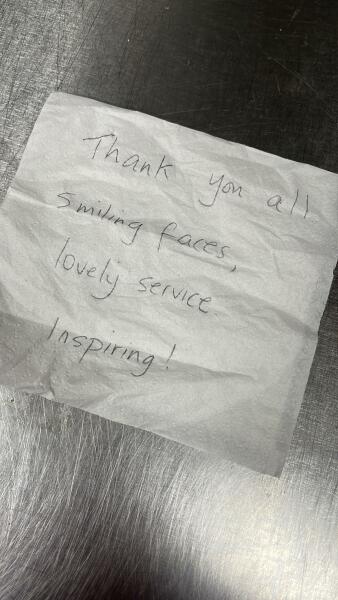 Thank you all
smiling faces,
lovely service
Inspiring!